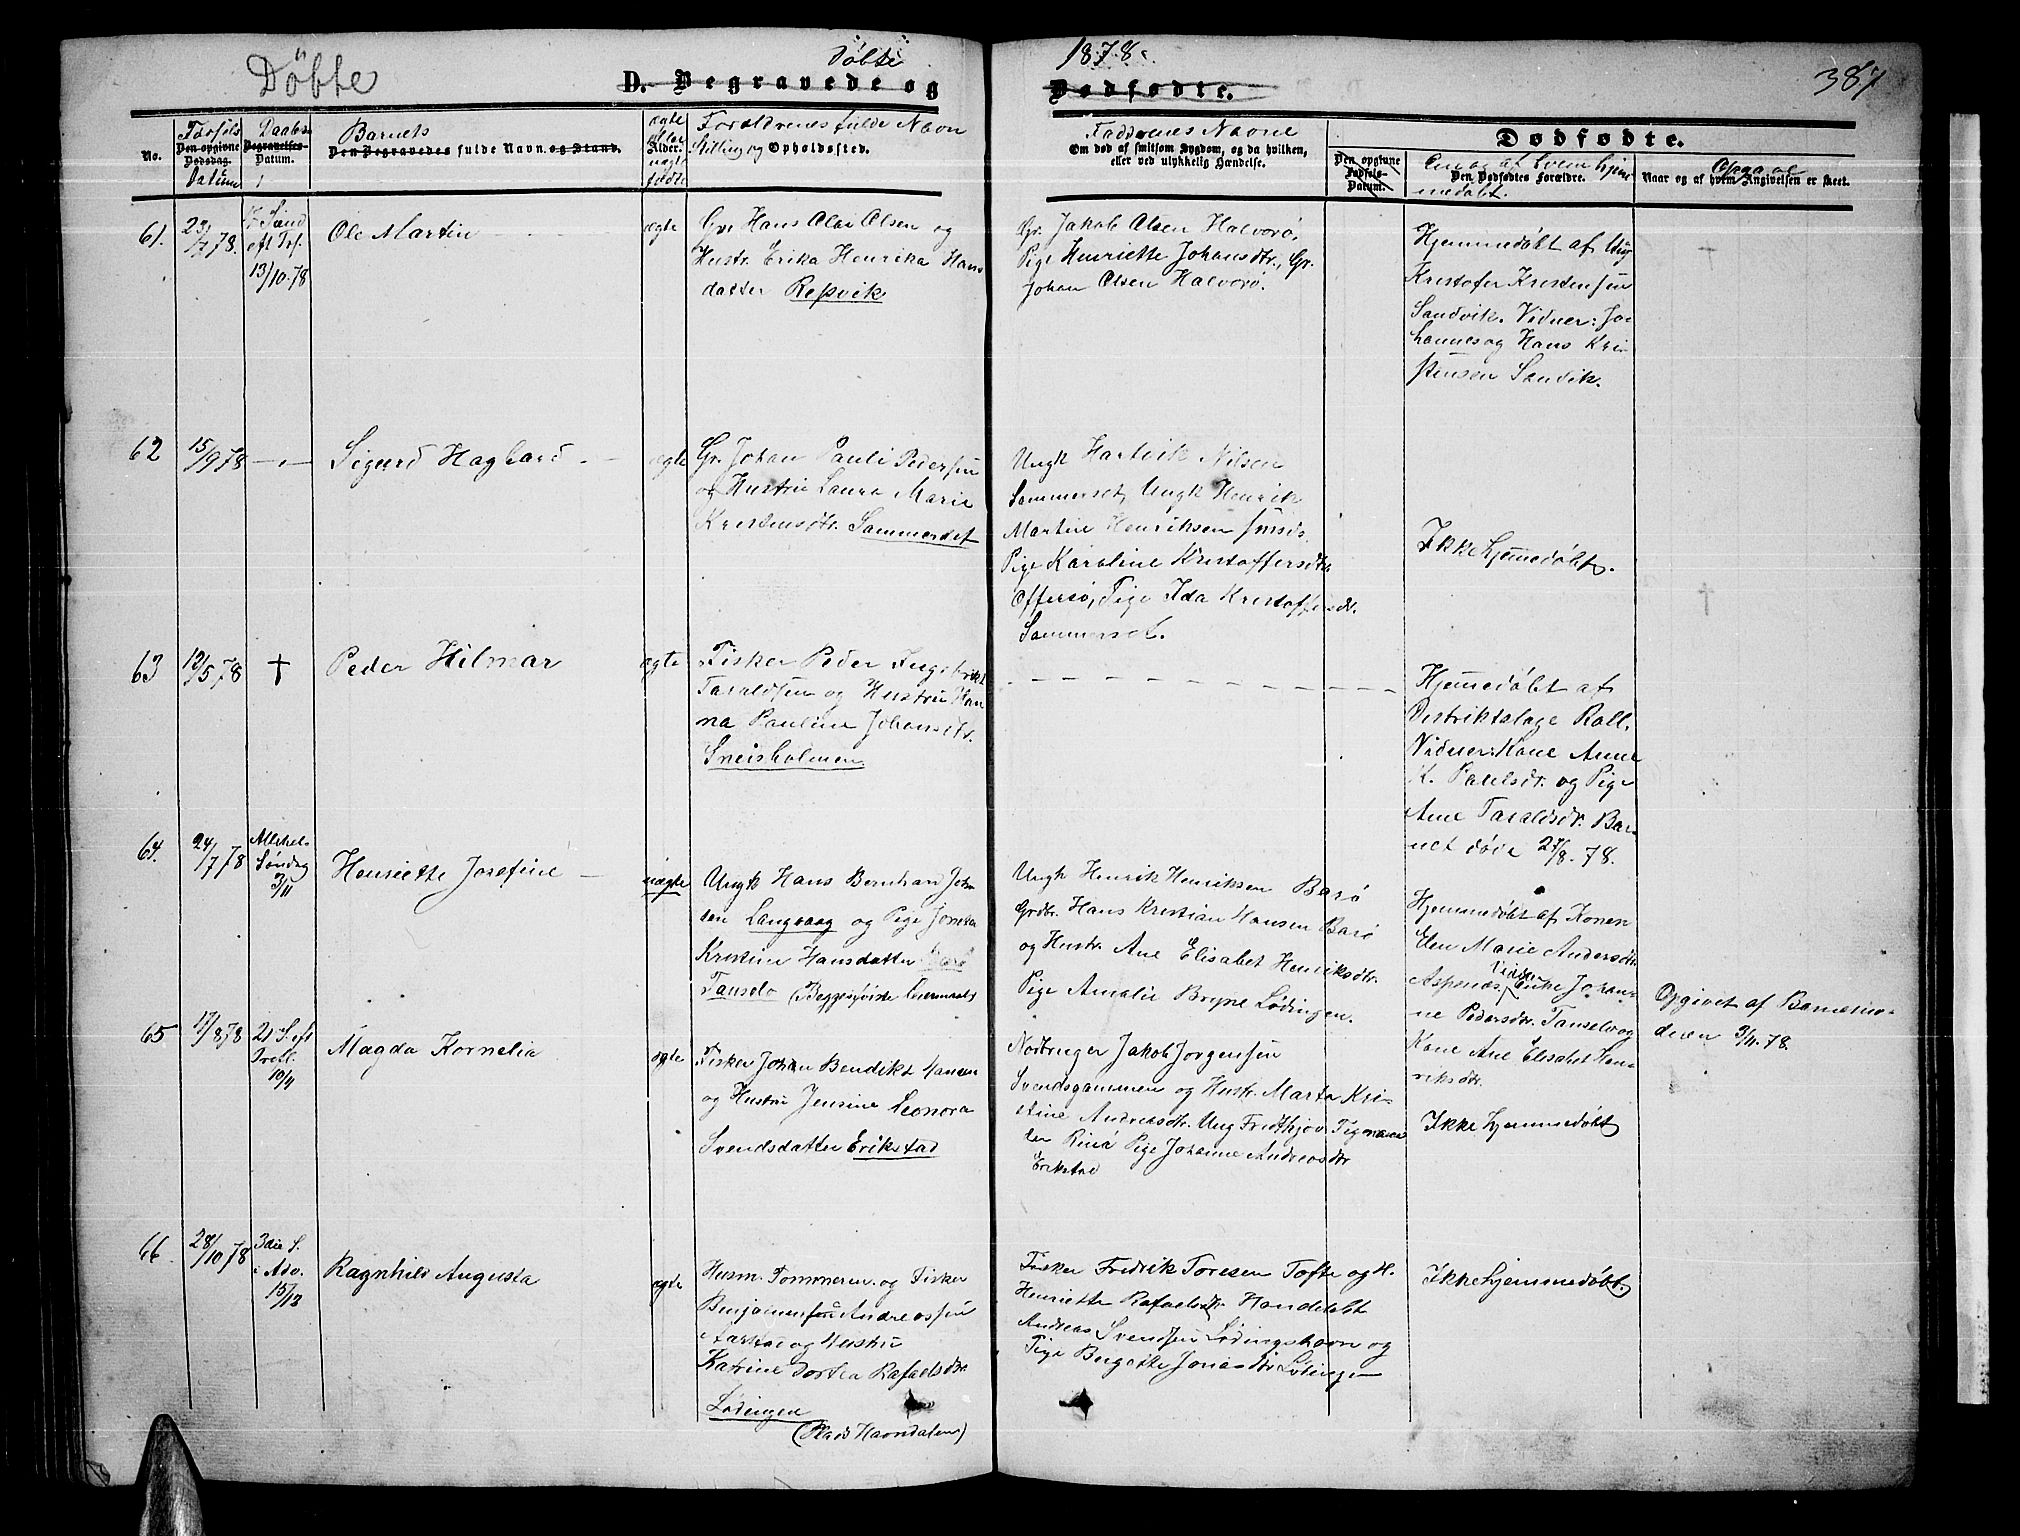 Döbte
Döbte
1878.
387
D. Begravede og
Dødfødte.
No.
Fødsels
Den opgivne
Dødsdag.
Datum
Daabs
Begravelses-
Datum.
Barnets
Den Begravedes fulde Navn og Stand.
ægte
eller
Alder.
uægte
fødte
Forældrenes fulde Navn
Stilling og Opholdssted.
Faddernes Navne
Om død af smitsom Sygdom, og da hvilken,
eller ved ulykkelig Hændelse.
Dødfødte.
Den opgivne
Fødsels-
Datum.
Om og af hvem hjem
medøbt.
Den Dødfødtes Forældre.
Opgave
Naar og af hvem Angivelsen er skeet.
61.
23/7 78.
Sønd
eft Trf.
13/10 78
Ole Martin
ægte
Gr Hans Olai Olsen og
Hustr. Erika Henrika Hans
datter Repvik
Gr. Jakob Olsen Halvorø,
Pige Henriette Johansdtr., Gr.
Johan Olsen Halvorø.
Hjemmedøbt af Ung
Kristofer Kristensen
Sandvik. Vidner: Jo-
hannes og Hans Kri-
stensen Sandvik.
62
15/9 78
Sigurd Hagbard
ægte
Gr. Johan Pauli Pedersen
og Hustru Laura Marie
Kristensdtr. Sammerset
Ungk Hartvik Nilsen
Sammerset, Ungk Henrik
Martin Henriksen
Pige Karoline Kristoffersdtr
Offersø, Pige Ida Kristoffersdtr.
Sammerset.
Ikke hjemmedøbt.
63
12/5 78
†
Peder Hilmar
ægte
Fisker Peder Ingebrikt
Taraldsen og Hustru Han
na Pauline Johansdtr.
Sneisholmen
Hjemmedøbt af
Distriktslæge Roll.
Vidner: Kone Anne
K. Paulsdtr. og Pige
Ane Taraldsdtr. Bar-
net døde 27/8. 78.
64.
24/7 78
Mikkels
Søndag
3/11
Henriette Josefine
uægte
Ungk Hans Bernhard Johan
sen Langvaag og Pige
Kristine Hansdatter Barø
Tanselv (Begges første Leiermaal)
Ungk Henrik Henriksen Barø
Grdbr. Hans Kristian Hansen Barø
og Hustr. Ane Elisabet Henriksdtr.
Pige Amalie Bryne Lødingen.
Hjemmedøbt af Konen
Elen Marie Andersdtr.
Aspenes, Vidner Enke Johan-
ne Pedersdtr. Tanselv og
Kone Ane Elisabet Hen-
riksdtr.
Opgivet af Barnemo-
deren 3/11. 78.
65
17/8 78
21 S. eft
Tref.
10/11
Magda Kornelia
ægte
Fisker Johan Bendikt Hansen
og Hustru Jensine Leonora
Svendsdatter Erikstad
Nordbruger Jakob Jørgensen
Svendsgammen og Hustr. Marta Kri-
stine Andreasdtr. Ung Fridthjov
Rinø Pige Johanne Andreasdtr
Erikstad
Ikke hjemmedøbt
66
28/10 78
3die S.
i Adv.
15/12
Ragnhild Augusta
ægte
Husm. Tømmerm. og Fisker
Benjamin Andreassen
Aarstad og Hustru
Katrine Dortea Rafaelsdtr
Lødingen
(Plads Havndalen)
Fisker Fredrik Toresen Tofte og H.
Henriette Rafaelsdtr. Handelsbt
Andreas Svendsen Lødingshavn og
Pige Bergitte Jonasdtr Lødingen
Ikke hjemmedøbt.